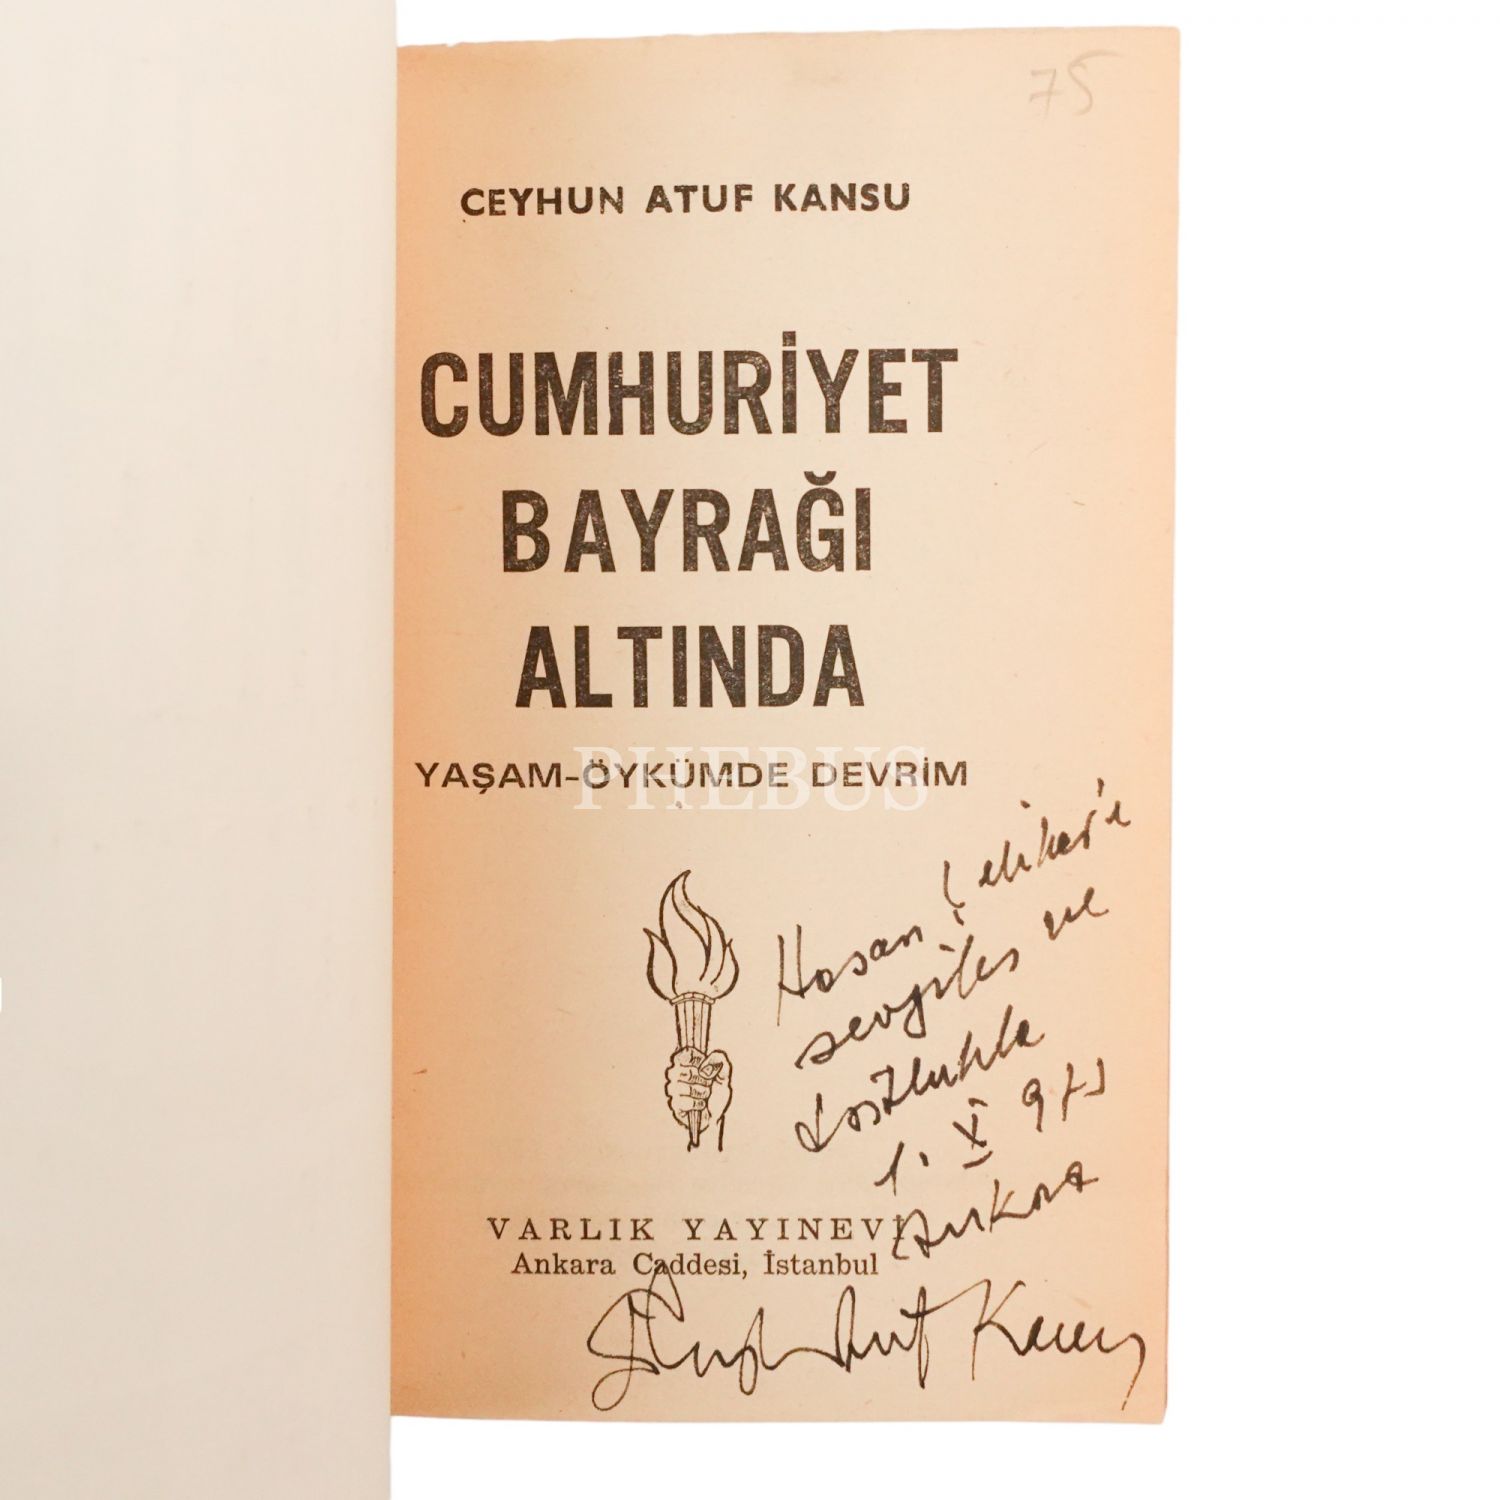 75
CEYHUN ATUF KANSU
CUMHURİYET
BAYRAĞI
ALTINDA
YAŞAM-ÖYKÜMDE DEVRİM
PHEBUS
Hasan Çeliker'e
sevgiler ve
dostlukla
1. X 973
Ankara
VARLIK YAYINEVİ
Ankara Caddesi, İstanbul
Ceyhun Atuf Kansu